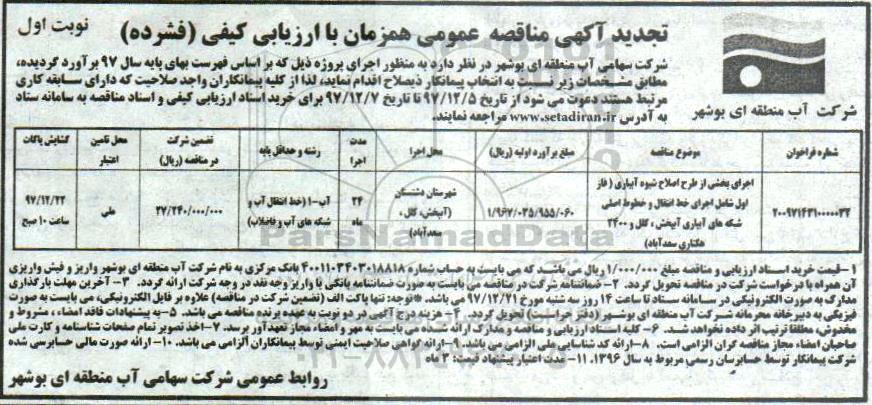 تجدید آگهی مناقصه عمومی همزمان با ارزیابی کیفی (فشرده)
نوبت اول
شرکت آب منطقه ای بوشهر
شرکت سهامی آب منطقه ای بوشهر در نظر دارد به منظور اجرای پروژه ذیل که بر اساس فهرست بهای پایه سال ۹۷ برآورد گردیده،
مطابق مشخصات زیر نسبت به انتخاب پیمانکار ذیصلاح اقدام نماید، لذا از کلیه پیمانکاران واجد صلاحیت که دارای سابقه کاری
مرتبط هستند دعوت می شود از تاریخ ۹۷/۱۲/۵ تا تاریخ ۹۷/۱۲/۷ برای خرید اسناد ارزیابی کیفی و اسناد مناقصه به سامانه ستاد
به آدرس www.setadiran.ir مراجعه نمایند.
شماره فراخوان
موضوع مناقصه
مبلغ برآورد اولیه (ریال)
محل اجرا
مدت اجرا
رشته و حداقل پایه
تضمین شرکت در مناقصه (ریال)
محل تامین اعتبار
گشایش پاکات
۲۰۰۹۷۱۴۳۱۰۰۰۰۰۳۲
اجرای بخشی از طرح اصلاح شیوه آبیاری (فاز
اول شامل اجرای خط انتقال و خطوط اصلی
شبکه های آبیاری آبپخش، کلل و ۲۴۰۰
هکتاری سعدآباد)
۱/۹۶۷/۰۳۵/۹۵۵/۰۶۰
شهرستان دشتستان
(آبپخش، کلل،
سعدآباد)
۲۴ ماه
آب-۱ (خط انتقال آب و
شبکه های آب و فاضلاب)
۲۷/۲۴۰/۰۰۰/۰۰۰
ملی
۹۷/۱۲/۲۲
ساعت ۱۰ صبح
۱-قیمت خرید اسناد ارزیابی و مناقصه مبلغ ۱/۰۰۰/۰۰۰ ریال می باشند که می بایست به حساب شماره ۴۰۰۱۱۰۳۴۰۳۰۱۸۸۱۸ بانک مرکزی به نام شرکت آب منطقه ای بوشهر واریز و فیش واریزی
آن همراه با درخواست شرکت در مناقصه تحویل گردد. ۲- ضمانتنامه شرکت در مناقصه می بایست به صورت ضمانتنامه بانکی یا واریز وجه نقد در وجه شرکت ارائه گردد. ۳- آخرین مهلت بارگذاری
مدارک به صورت الکترونیکی در سامانه ستاد تا ساعت ۱۴ روز سه شنبه مورخ ۹۷/۱۲/۲۱ می باشد. *توجه: تنها پاکت الف (تضمین شرکت در مناقصه) علاوه بر فایل الکترونیکی، می بایست به صورت
فیزیکی به دبیرخانه محرمانه شرکت آب منطقه ای بوشهر (دفتر حراست) تحویل گردد. ۴- هزینه درج آگهی در دو نوبت به عهده برنده مناقصه می باشد. ۵-به پیشنهادات فاقد امضاء، مشروط و
مخدوش، مطلقا ترتیب اثر داده نخواهد شد. ۶- کلیه اسناد ارزیابی و مناقصه و مدارک ارائه شده می بایست به مهر و امضاء مجاز تعهدآور برسد. ۷-اخذ تصویر تمام صفحات شناسنامه و کارت ملی
صاحبان امضاء مجاز مناقصه گران الزامی است. ۸-ارائه کد شناسایی ملی الزامی می باشد. ۹-ارائه گواهی صلاحیت ایمنی توسط پیمانکاران الزامی می باشد. ۱۰-ارائه صورت مالی حسابرسی شده
شرکت پیمانکار توسط حسابرسان رسمی مربوط به سال ۱۳۹۶. ۱۱-مدت اعتبار پیشنهاد قیمت: ۳ ماه
روابط عمومی شرکت سهامی آب منطقه ای بوشهر
ParsNamadData